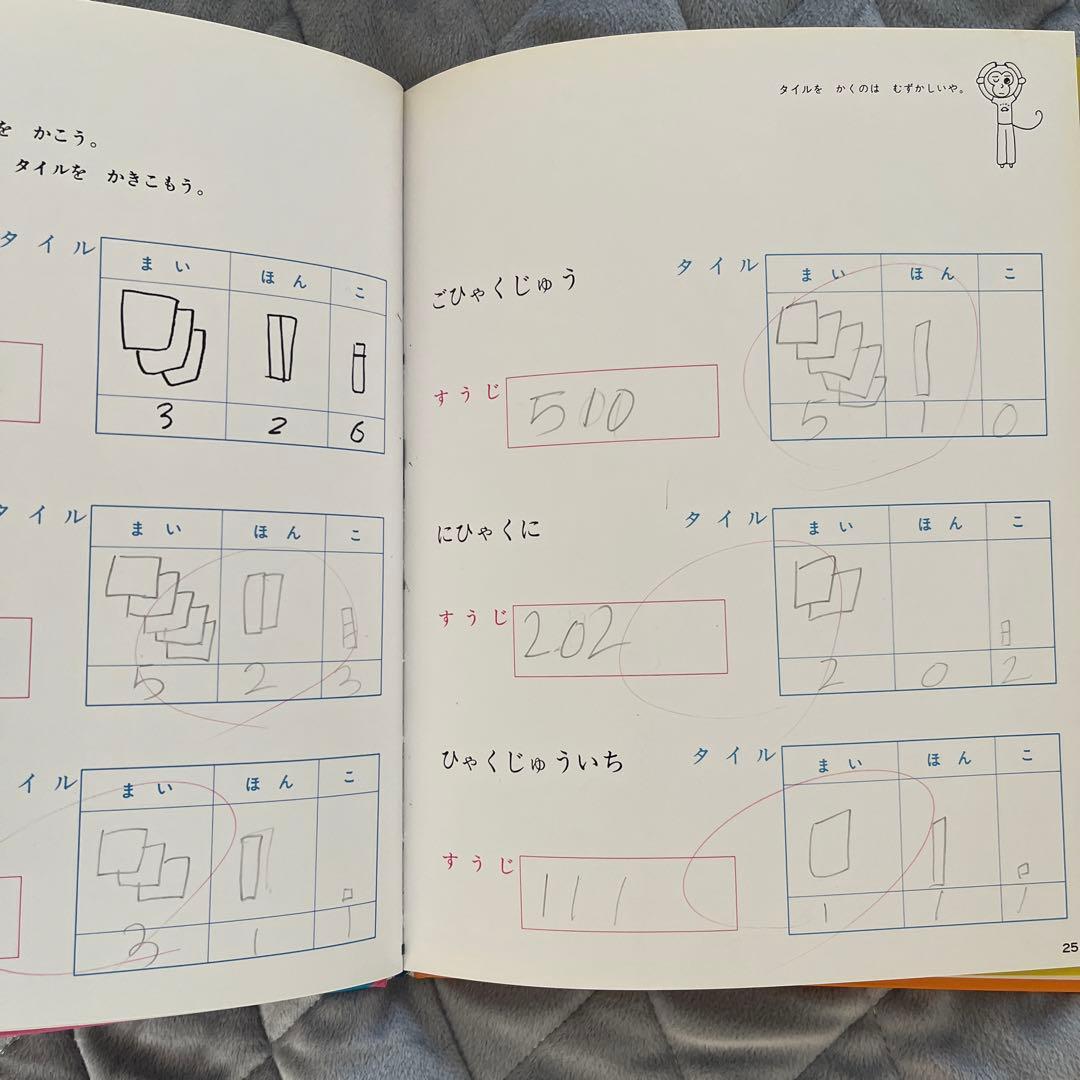 を かこう。
タイルを かきこもう。
タイル
まい ほん こ
3 2 6
タイル
まい ほん こ
5 2 3
イル
まい ほん こ
3 1 1
タイルを かくのは むずかしいや。
ごひゃくじゅう
タイル
まい ほん こ
すうじ
5 1 0
にひゃくに
タイル
まい ほん こ
すうじ 202
2 0 2
ひゃくじゅういち
タイル
まい ほん こ
すうじ 111
1 1 1
25